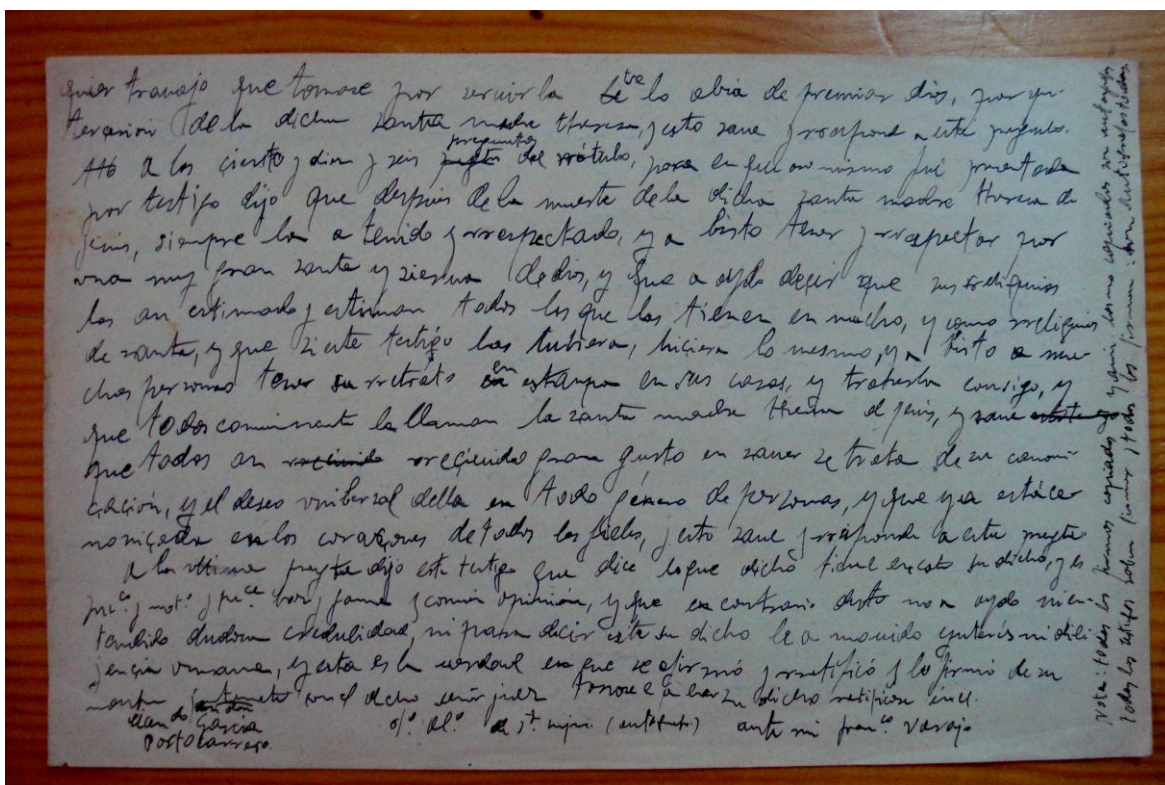 quier travajo que tomase por servirla se lo abia de premiar dios, por yn-
terçesion de la dicha santa madre theresa, y esto save y rresponde a esta pregunta.
A los çiento y diez y seis preguntas del rrótulo, para en que ansimismo fué presentada
por testigo dijo que después de la muerte de la dicha santa madre theresa de
jesus, siempre la a tenido y rrespectado, y a bisto tener y rrespectar por
una muy gran santa y sierva de dios, y que a oydo deçir que sus reliquias
las an estimado y estiman todos los que las tienen en mucho, y como rreliquias
de santa, y que si este testigo las tubiera, hiciera lo mesmo, y a bisto a mu-
chas personas tener su rretrato en estampa en sus casas, y traherla consigo, y
que todos comunmente la llaman la santa madre theresa de jesús, y save
que todos an rreçiuido gran gusto en saver se trata de su canoni-
çaçión, y el deseo vniberzal della en todo género de personas, y que ya está ca-
noniçada en los coraçones de todos los fieles, y esto save y rresponde a esta pregta
A la última pregta dijo este testigo que dice lo que dicho tiene en este su dicho, y es
puco y noto y puca boz y fama y común opinión, y que en contrario desto no a oydo ni en-
tendido dudosa credulidad, ni para deçir este su dicho le a mouido ynterés ni dili-
jençia vmana, y esta es la verdad en que se afirmó y rratificó y lo firmó de su
con el dicho señor juez
garcia
Portocarrero.
(autógrafo) ante mi franco varajo
Nota: todos los firmos copiados y quien los mo copiados son autógrafos
todos los testigos saben firmar y todos los firman: son autógrafos todos